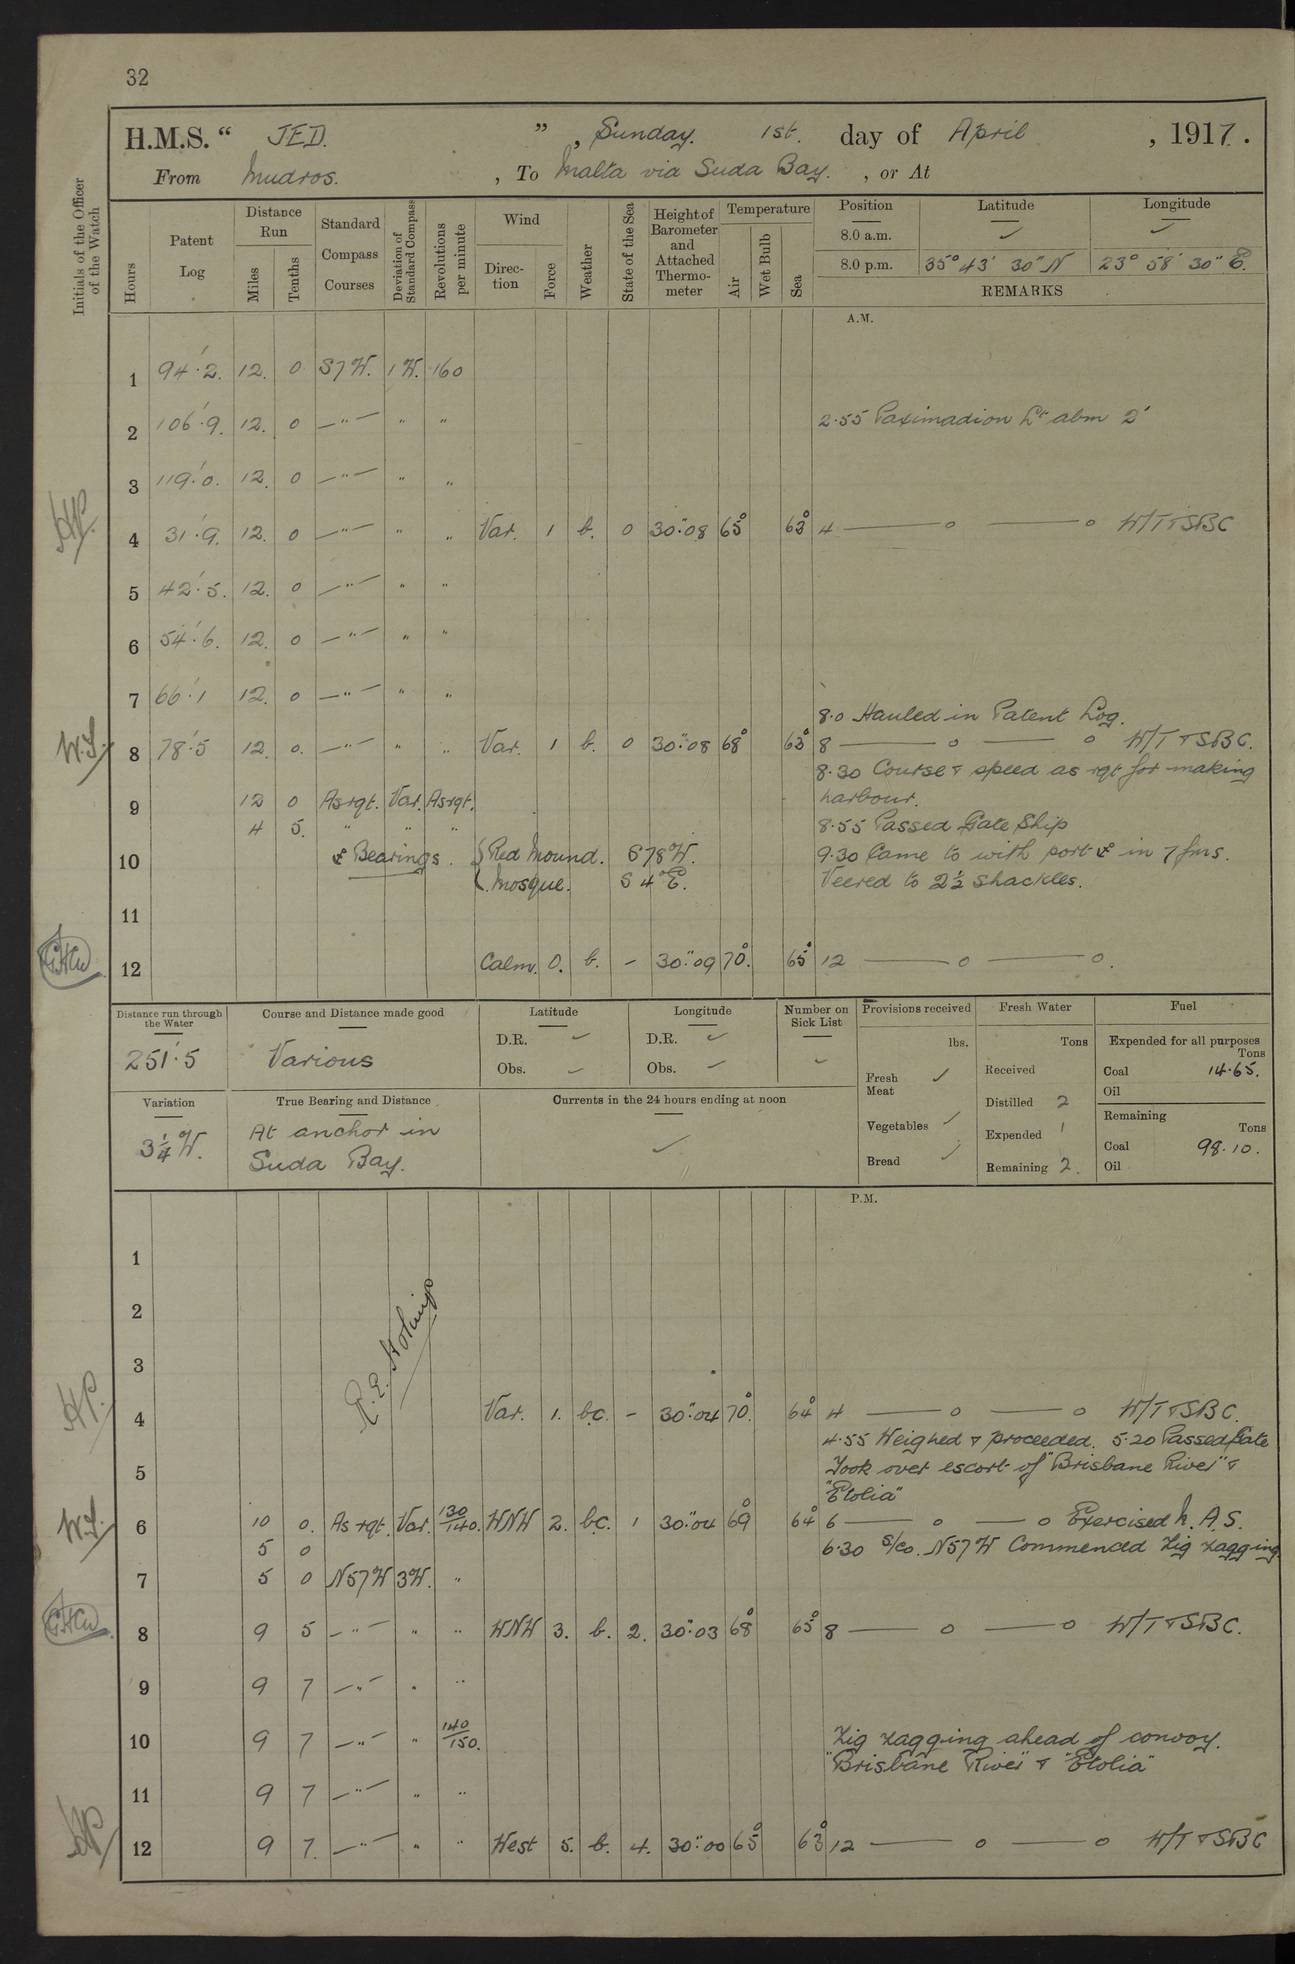 32
H.M.S. “ JED. ” , Sunday. 1st. day of April , 1917.
From Mudros. , To Malta via Suda Bay. , or At
Initials of the Officer of the Watch
Hours
Patent Log
Distance Run
Miles
Tenths
Standard Compass Courses
Deviation of Standard Compass
Revolutions per minute
Wind
Direction
Force
Weather
State of the Sea
Height of Barometer and Attached Thermometer
Temperature
Air
Wet Bulb
Sea
Position Latitude Longitude
8.0 a.m. ✓ ✓
8.0 p.m. 35° 43' 30" N 23° 58' 30" E.
REMARKS
A.M.
1 94'.2. 12. 0 S7W. 1W. 160
2 106'.9. 12. 0 —"— " " 2.55 Paximadion Lt abm 2'
3 119'.0. 12. 0 —"— " "
4 31'.9. 12. 0 —"— " " Var. 1 b. 0 30".08 65° 63° 4 —— o —— o W/T & SBC
5 42'.5. 12. 0 —"— " "
6 54'.6. 12. 0 —"— " "
7 66'.1 12. 0 —"— " "
8.0 Hauled in Patent Log.
W.S. 8 78'.5 12. 0. —"— " " Var. 1 b. 0 30".08 68° 63° 8 —— o —— o W/T & SBC.
8.30 Course & speed as rqt for making
9 12 0 As rqt. Var. As rqt. harbour.
4 5. " " " 8.55 Passed Gate Ship
10 ⚓ Bearings. { Red Mound. S78W. 9.30 Came to with port ⚓ in 7 fms.
Mosque. S4°E. Veered to 2½ shackles.
11
GHW 12 Calm. 0. b. – 30".09 70°. 65° 12 —— o —— o.
Distance run through the Water
251'.5
Course and Distance made good
Various
Latitude
D.R. ✓
Obs. ✓
Longitude
D.R. ✓
Obs. ✓
Number on Sick List
✓
Provisions received
lbs.
Fresh Meat ✓
Vegetables ✓
Bread ✓
Fresh Water
Tons
Received
Distilled 2
Expended 1
Remaining 2.
Fuel
Expended for all purposes
Tons
Coal 14.65.
Oil
Remaining
Tons
Coal 98.10.
Oil
Variation
3¼ W.
True Bearing and Distance
At anchor in
Suda Bay.
Currents in the 24 hours ending at noon
✓
P.M.
1
2
3
4 Var. 1. b.c. – 30".04 70°. 64° 4 —— o —— o W/T & SBC.
4.55 Weighed & proceeded. 5.20 Passed Gate
5 Took over escort of "Brisbane River" &
"Etolia"
W.S. 6 10 0. As rqt. Var. 130/140. WNW 2. b.c. 1 30".04 69° 64° 6 —— o —— o Exercised N.A.S.
5 0 6.30 S/co. N57W Commenced Zig zagging
7 5 0 N57W 3W. "
GHW 8 9 5 —"— " " WNW 3. b. 2. 30".03 68° 65° 8 —— o —— o W/T & SBC.
9 9 7 —"— " "
10 9 7 —"— " 140/150. Zig zagging ahead of convoy.
"Brisbane River" & "Etolia"
11 9 7 —"— " "
12 9 7. —"— " " West 5. b. 4. 30".00 65° 63° 12 —— o —— o W/T & SBC